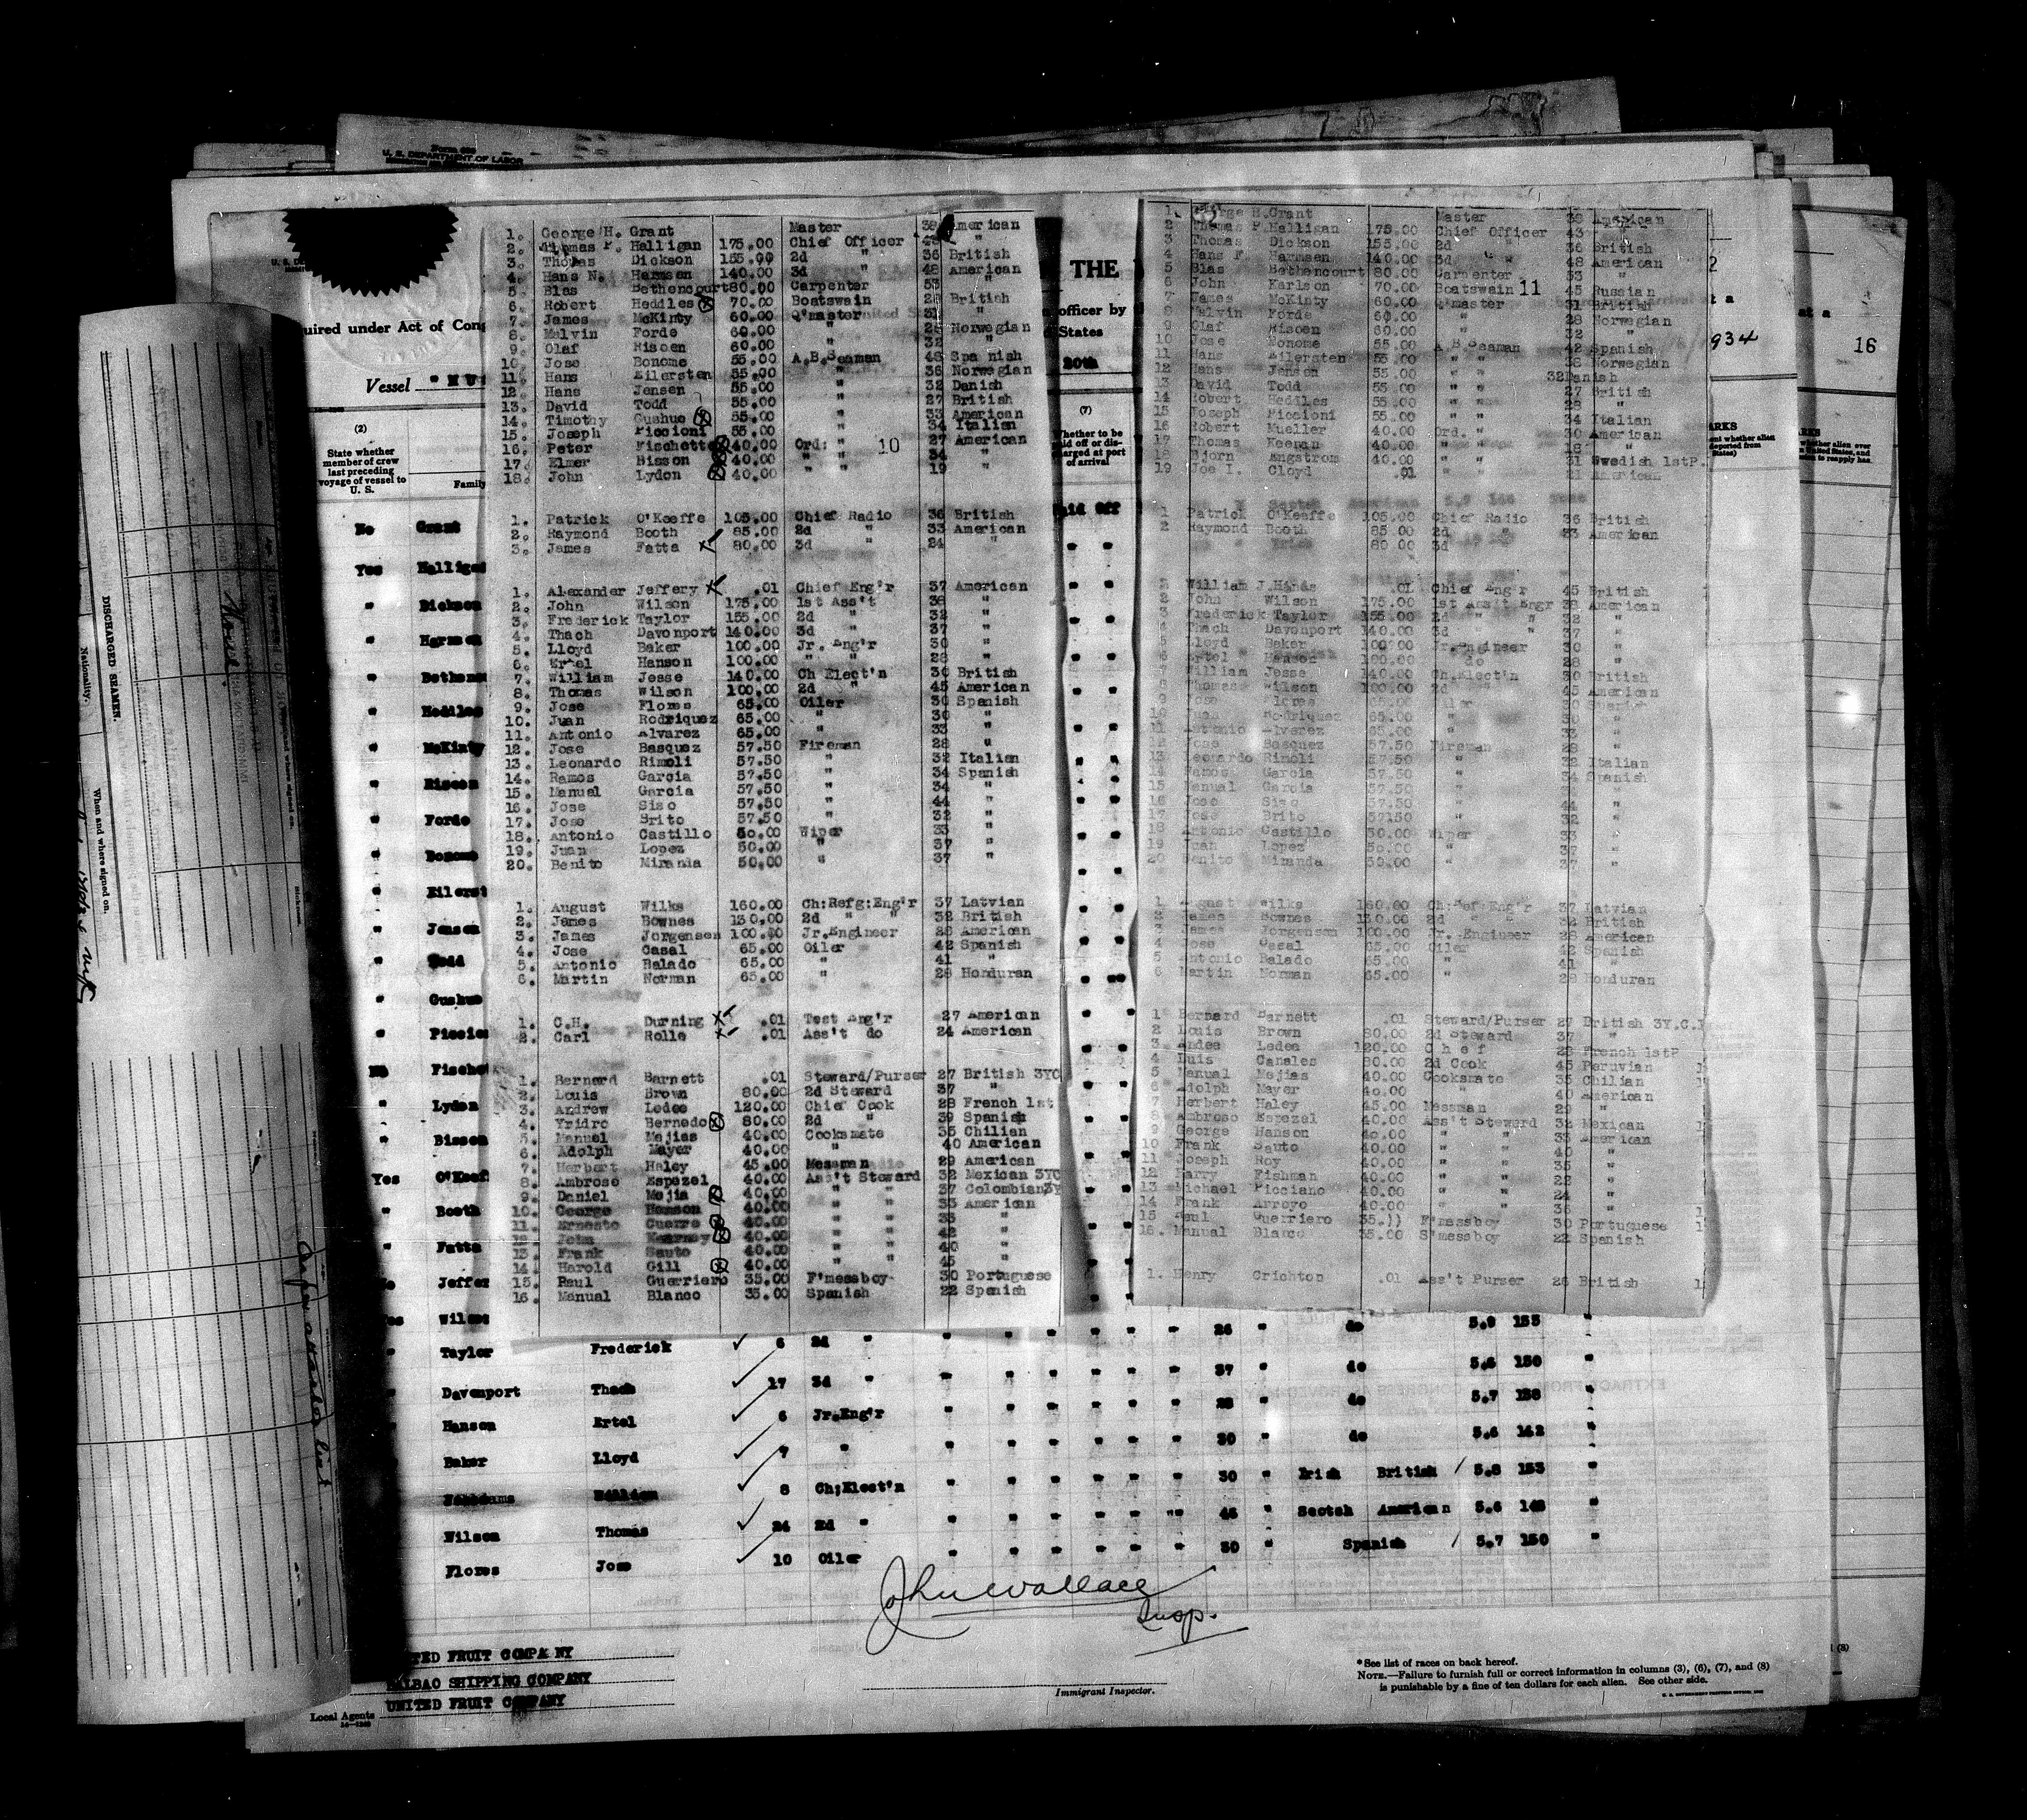 U. S. DEPARTMENT OF LABOR
1. George H. Grant Master 38 American
2. Thomas P. Halligan 175.00 Chief Officer 43 "
3. Thomas Dickson 155.00 2d " 36 British
4. Hans N. Harmsen 140.00 3d " 48 American
5. Blas Bethencourt 80.00 Carpenter 53 "
6. Robert Heddles 70.00 Boatswain 28 British
7. James McKinty 60.00 Q'master 31 "
8. Melvin Forde 60.00 " 28 Norwegian
9. Olaf Risoen 60.00 " 32 "
10. Jose Bonome 55.00 A.B.Seaman 43 Spanish
11. Hans Eilersten 55.00 " 36 Norwegian
12. Hans Jensen 55.00 " 32 Danish
13. David Todd 55.00 " 27 British
14. Timothy Gushue 55.00 " 33 American
15. Joseph Piccioni 55.00 " 34 Italian
16. Peter Fischetti 40.00 Ord: " 10 27 American
17. Elmer Bisson 40.00 " " 34 "
18. John Lydon 40.00 " " 19 "
1. Patrick O'Keeffe 105.00 Chief Radio 36 British
2. Raymond Booth 85.00 2d " 33 American
3. James Fatta 80.00 3d " 24 "
1. Alexander Jeffery .01 Chief Eng'r 37 American
2. John Wilson 175.00 1st Ass't 38 "
3. Frederick Taylor 155.00 2d " 32 "
4. Thach Davonport 140.00 3d " 37 "
5. Lloyd Baker 100.00 Jr. Eng'r 30 "
6. Ertel Hanson 100.00 " " 28 "
7. William Jesse 140.00 Ch Elect'n 30 British
8. Thomas Wilson 100.00 2d " 45 American
9. Jose Flores 65.00 Oiler 30 Spanish
10. Juan Rodriquez 65.00 " 30 "
11. Antonio Alvarez 65.00 " 33 "
12. Jose Basquez 57.50 Fireman 28 "
13. Leonardo Rimoli 57.50 " 32 Italian
14. Ramos Garcia 57.50 " 34 Spanish
15. Manual Garcia 57.50 " 34 "
16. Jose Siso 57.50 " 44 "
17. Jose Brito 57.50 " 32 "
18. Antonio Castillo 50.00 Wiper 33 "
19. Juan Lopez 50.00 " 37 "
20. Benito Mirania 50.00 " 37 "
1. August Wilks 160.00 Ch:Refg:Eng'r 37 Latvian
2. James Bownes 130.00 2d " " 32 British
3. James Jorgensen 100.00 Jr.Engineer 28 American
4. Jose Casal 65.00 Oiler 42 Spanish
5. Antonio Balado 65.00 " 41 "
6. Martin Norman 65.00 " 28 Honduran
1. C.H. Durning .01 Test Eng'r 27 American
2. Carl Rolle .01 Ass't do 24 American
1. Bernard Barnett .01 Steward/Purser 27 British 3YC
2. Louis Brown 80.00 2d Steward 37 "
3. Andrew Ledee 120.00 Chief Cook 28 French 1st
4. Yridro Bernedo 80.00 2d " 39 Spanish
5. Manuel Mejias 40.00 Cooksmate 35 Chilian
6. Adolph Mayer 40.00 " 40 American
7. Herbert Haley 45.00 Messman 29 American
8. Ambroso Espezel 40.00 Ass't Steward 32 Mexican 3YC
9. Daniel Mejia 40.00 " " 37 Colombian3Y
10. George Hanson 40.00 " " 33 American
11. Ernesto Guerro 40.00 " " 35 "
12. John Kearney 40.00 " " 42 "
13. Frank Sauto 40.00 " " 40 "
14. Harold Gill 40.00 " " 45 "
15. Paul Guerriero 35.00 F'messboy 30 Portuguese
16. Manual Blanco 35.00 Spanish 22 Spanish
THE
officer by
States
20th
(7)
Whether to be
paid off or dis-
charged at port
of arrival
Paid Off
1. George H.Grant Master 38 American
2 Thomas P.Halligan 175.00 Chief Officer 43 "
3 Thomas Dickson 155.00 2d " 36 British
4 Hans F Harmsen 140.00 3d " 48 American
5 Blas Bethencourt 80.00 Carpenter 53 "
6 John Karlson 70.00 Boatswain 11 45 Russian
7 James McKinty 60.00 Q'master 31 British
8 Melvin Forde 60.00 " 28 Norwegian
9 Olaf Risoen 60.00 " 32 "
10 Jose Bonome 55.00 A.B Seaman 42 Spanish
11 Hans Eilersten 55.00 " " 38 Norwegian
12 Hans Jensen 55.00 " " 32Danish
13 David Todd 55.00 " " 27 British
14 Robert Heddles 55.00 " " 28 "
15 Joseph Piccioni 55.00 " " 34 Italian
16 Robert Mueller 40.00 Ord. " 30 American
17 Thomas Keenan 40.00 " " 18 "
18 Bjorn Angstrom 40.00 " " 31 Swedish 1stP.
19 Joe I. Cloyd .01 21 American
1 Patrick O'Keeffe 105.00 Chief Radio 36 British
2 Raymond Booth 85.00 2d " 33 American
80.00 3d
William J.Hinds .01 Chief Eng'r 45 British
2 John Wilson 175.00 1st Ass't Engr 38 American
3 Frederick Taylor 155.00 2d " " 32 "
4 Thach Davonport 140.00 3d " " 37 "
5 Lloyd Baker 100.00 Jr.Engineer 30 "
6 Ertel Hanson 100.00 do 28 "
7 William Jesse 140.00 Ch.Elect'n 30 British
8 Thomas Wilson 100.00 2d " 45 American
9 Jose Flores 65.00 Oiler 30 Spanish
10 Juan Rodriquez 65.00 " 30 "
11 Antonio Alverez 65.00 " 33 "
12 Jose Basquez 57.50 Fireman 28 "
13 Leonardo Rimoli 57.50 " 32 Italian
14 Ramos Garcia 57.50 " 34 Spanish
15 Manual Garcia 57.50 "
16 Jose Siso 57.50 " 44 "
17 Jose Brito 57150 " 32 "
18 Antonio Castillo 50.00 Wiper 33 "
19 Juan Lopez 50.00 " 37 "
20 Benito Miranda 50.00 " 37 "
1 August Wilks 160.00 Ch:Ref:Eng'r 37 Latvian
2 James Bownes 130.00 2d " " 32 British
3 James Jorgenson 100.00 Jr. Engineer 28 American
4 Jose Casal 65.00 Oiler 42 Spanish
5 Antonio Balado 65.00 " 41 "
6 Martin Norman 65.00 " 28 Honduran
1 Bernard Barnett .01 Steward/Purser 27 British 3Y.C.
2 Louis Brown 80.00 2d Steward 37 "
3 Andee Ledee 120.00 C h e f 28 French 1stP
4 Luis Canales 80.00 2d Cook 45 Peruvian
5 Manual Mejias 40.00 Cooksmate 35 Chilian
6 Adolph Mayer 40.00 " 40 American
7 Herbert Haley 45.00 Messman 29 "
8 Ambroso Espezel 40.00 Ass't Steward 32 Mexican
9 George Hanson 40.00 " " 33 American
10 Frank Sauto 40.00 " " 40 "
11 Joseph Roy 40.00 " " 35 "
12 Harry Fishman 40.00 " " 22 "
13 Michael Picciano 40.00 " " 24 "
14 Frank Arroyo 40.00 " " 36 "
15 Paul Guerriero 35.)) F'messboy 30 Portuguese
16. Manual Blanco 35.00 S'messboy 22 Spanish
1. Henry Crichton .01 Ass't Purser 26 British
934
at a
16
uired under Act of Cong
Vessel "MU
(2)
State whether
member of crew
last preceding
voyage of vessel to
U. S.
Family
No Grant
Yes Halligan
" Dickson
" Harmsen
" Bethenc
" Heddles
" McKinty
" Risoen
" Forde
" Bonome
" Eilerst
" Jensen
" Todd
" Gushue
" Piccion
No Fische
" Lydon
" Bisson
Yes O'Keef
" Booth
" Fatta
Jeffer
Wilson
26 " do 5.9 155 "
Taylor Frederick 6 2d " 37 " do 5.6 150 "
Davenport Thach 17 3d " 28 " do 5.7 138 "
Hanson Ertel 6 Jr.Eng'r 30 " do 5.6 142 "
Baker Lloyd 7 " 30 " Irish British 5.8 153 "
William 8 Ch;Elect'n 45 " Scotch American 5.6 148 "
Wilson Thomas 24 2d " 30 " Spanish 5.7 150 "
Flores Jose 10 Oiler
John Wallace
Insp.
Immigrant Inspector.
TED FRUIT COMPA NY
BALBAO SHIPPING COMPANY
UNITED FRUIT COMPANY
Local Agents
*See list of races on back hereof.
NOTE.—Failure to furnish full or correct information in columns (3), (6), (7), and (8)
is punishable by a fine of ten dollars for each alien. See other side.
DISCHARGED SEAMEN.
Nationality.
When and where signed on.